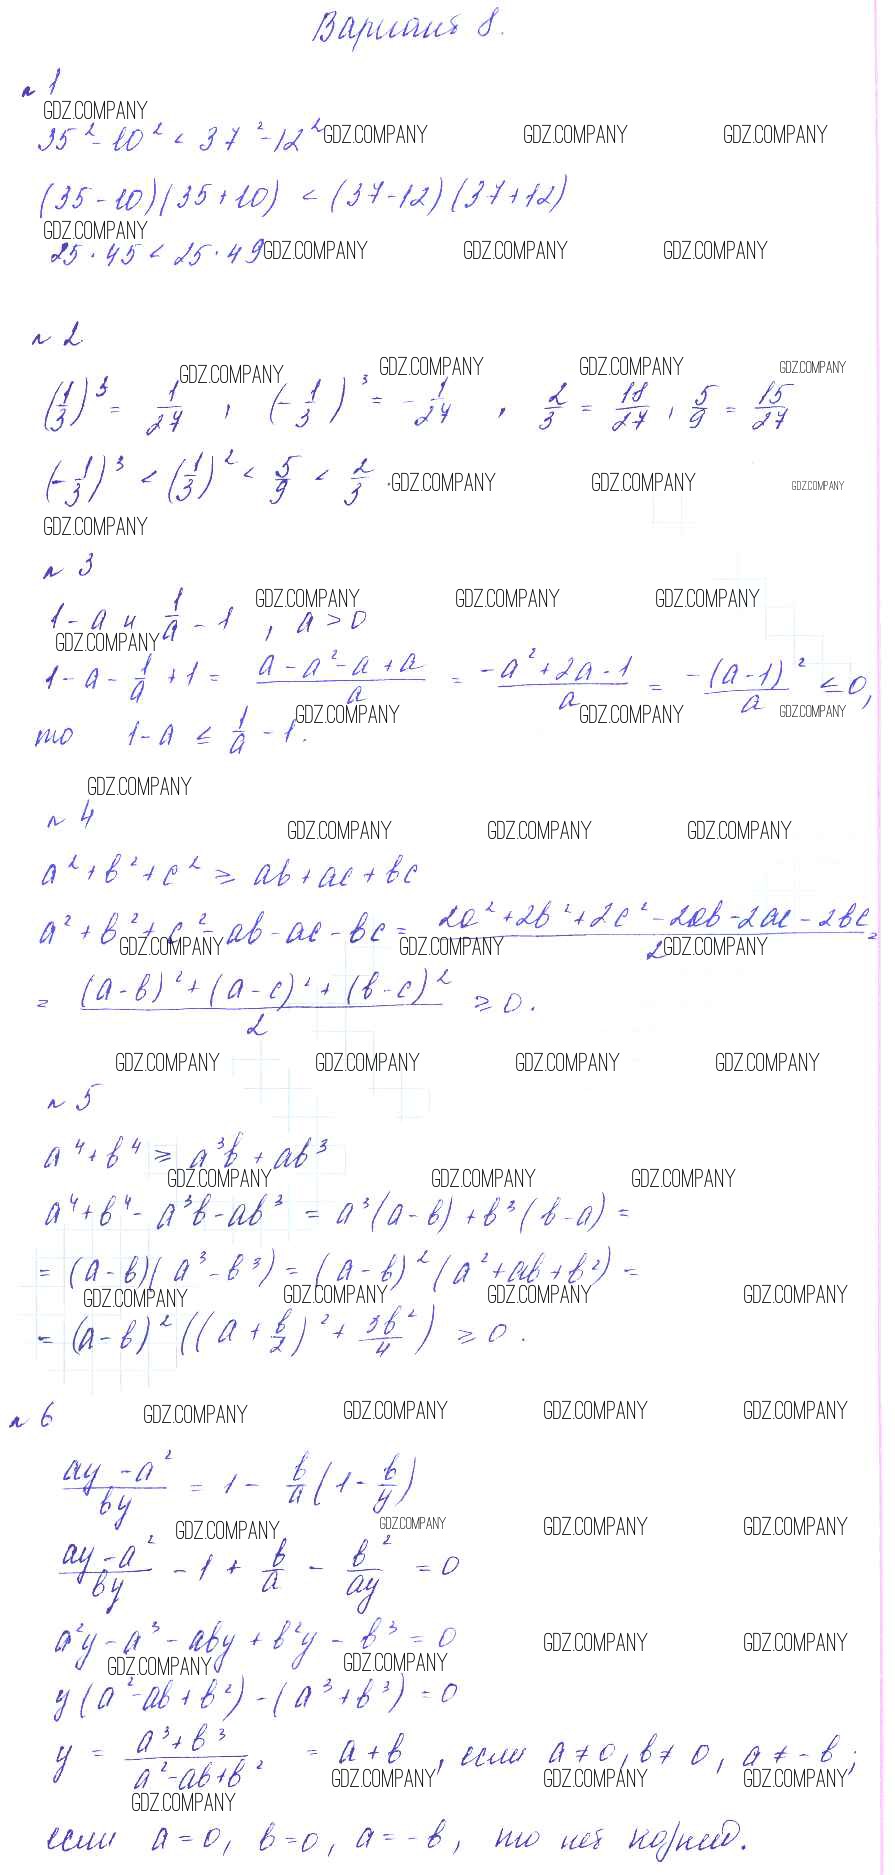 Вариант 8.
№1
GDZ.COMPANY
35² - 10² < 37² - 12² GDZ.COMPANY GDZ.COMPANY GDZ.COMPANY
(35 - 10)(35 + 10) < (37 - 12)(37 + 12)
GDZ.COMPANY
25 · 45 < 25 · 49 GDZ.COMPANY GDZ.COMPANY GDZ.COMPANY
№2
GDZ.COMPANY GDZ.COMPANY GDZ.COMPANY GDZ.COMPANY
(1/3)³ = 1/27 , (-1/3)³ = -1/27 , 2/3 = 18/27 , 5/9 = 15/27
(-1/3)³ < (1/3)² < 5/9 < 2/3 . GDZ.COMPANY GDZ.COMPANY GDZ.COMPANY
GDZ.COMPANY
№3
1 - a и 1/a - 1 , a > 0 GDZ.COMPANY GDZ.COMPANY GDZ.COMPANY
GDZ.COMPANY
1 - a - 1/a + 1 = (a - a² - a + a)/a = (-a² + 2a - 1)/a = -(a - 1)²/a ≤ 0,
GDZ.COMPANY GDZ.COMPANY GDZ.COMPANY
то 1 - a ≤ 1/a - 1.
GDZ.COMPANY
№4
GDZ.COMPANY GDZ.COMPANY GDZ.COMPANY
a² + b² + c² ≥ ab + ac + bc
a² + b² + c² - ab - ac - bc = (2a² + 2b² + 2c² - 2ab - 2ac - 2bc)/2 =
GDZ.COMPANY GDZ.COMPANY GDZ.COMPANY
= ((a - b)² + (a - c)² + (b - c)²)/2 ≥ 0.
GDZ.COMPANY GDZ.COMPANY GDZ.COMPANY GDZ.COMPANY
№5
a⁴ + b⁴ ≥ a³b + ab³
GDZ.COMPANY GDZ.COMPANY GDZ.COMPANY
a⁴ + b⁴ - a³b - ab³ = a³(a - b) + b³(b - a) =
= (a - b)(a³ - b³) = (a - b)²(a² + ab + b²) =
GDZ.COMPANY GDZ.COMPANY GDZ.COMPANY GDZ.COMPANY
= (a - b)²((a + b/2)² + 3b²/4) ≥ 0.
№6 GDZ.COMPANY GDZ.COMPANY GDZ.COMPANY GDZ.COMPANY
(ay - a²)/by = 1 - b/a(1 - b/y)
GDZ.COMPANY GDZ.COMPANY GDZ.COMPANY GDZ.COMPANY
(ay - a²)/by - 1 + b/a - b²/ay = 0
a²y - a³ - aby + b²y - b³ = 0 GDZ.COMPANY GDZ.COMPANY
GDZ.COMPANY GDZ.COMPANY
y(a² - ab + b²) - (a³ + b³) = 0
y = (a³ + b³)/(a² - ab + b²) = a + b , если a ≠ 0, b ≠ 0, a ≠ -b;
GDZ.COMPANY GDZ.COMPANY GDZ.COMPANY
GDZ.COMPANY
если a = 0, b = 0, a = -b, то нет корней.